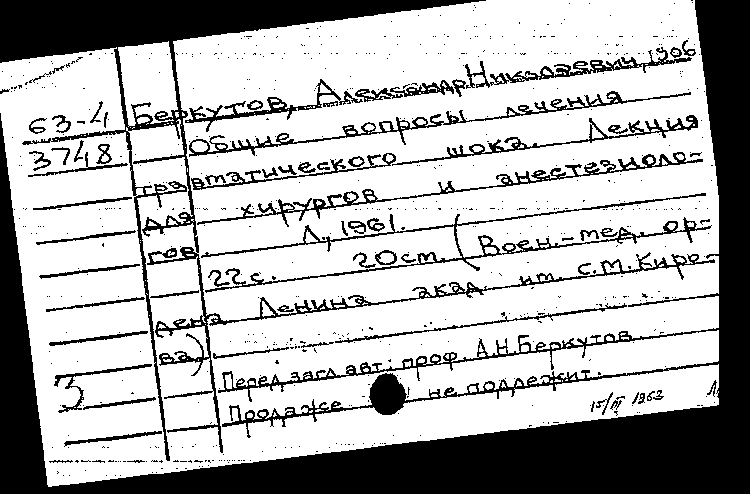 63-4
3748
Беркутов, Александр Николаевич, 1906
Общие вопросы лечения
травматического шока. Лекция
для хирургов и анестезиоло-
гов. Л, 1961.
22 с. 20 см. (Воен.-мед. ор-
дена Ленина акад. им. С.М. Киро-
ва).
Перед загл авт: проф. А.Н. Беркутов
Продаже не подлежит.
З
15/III 1962